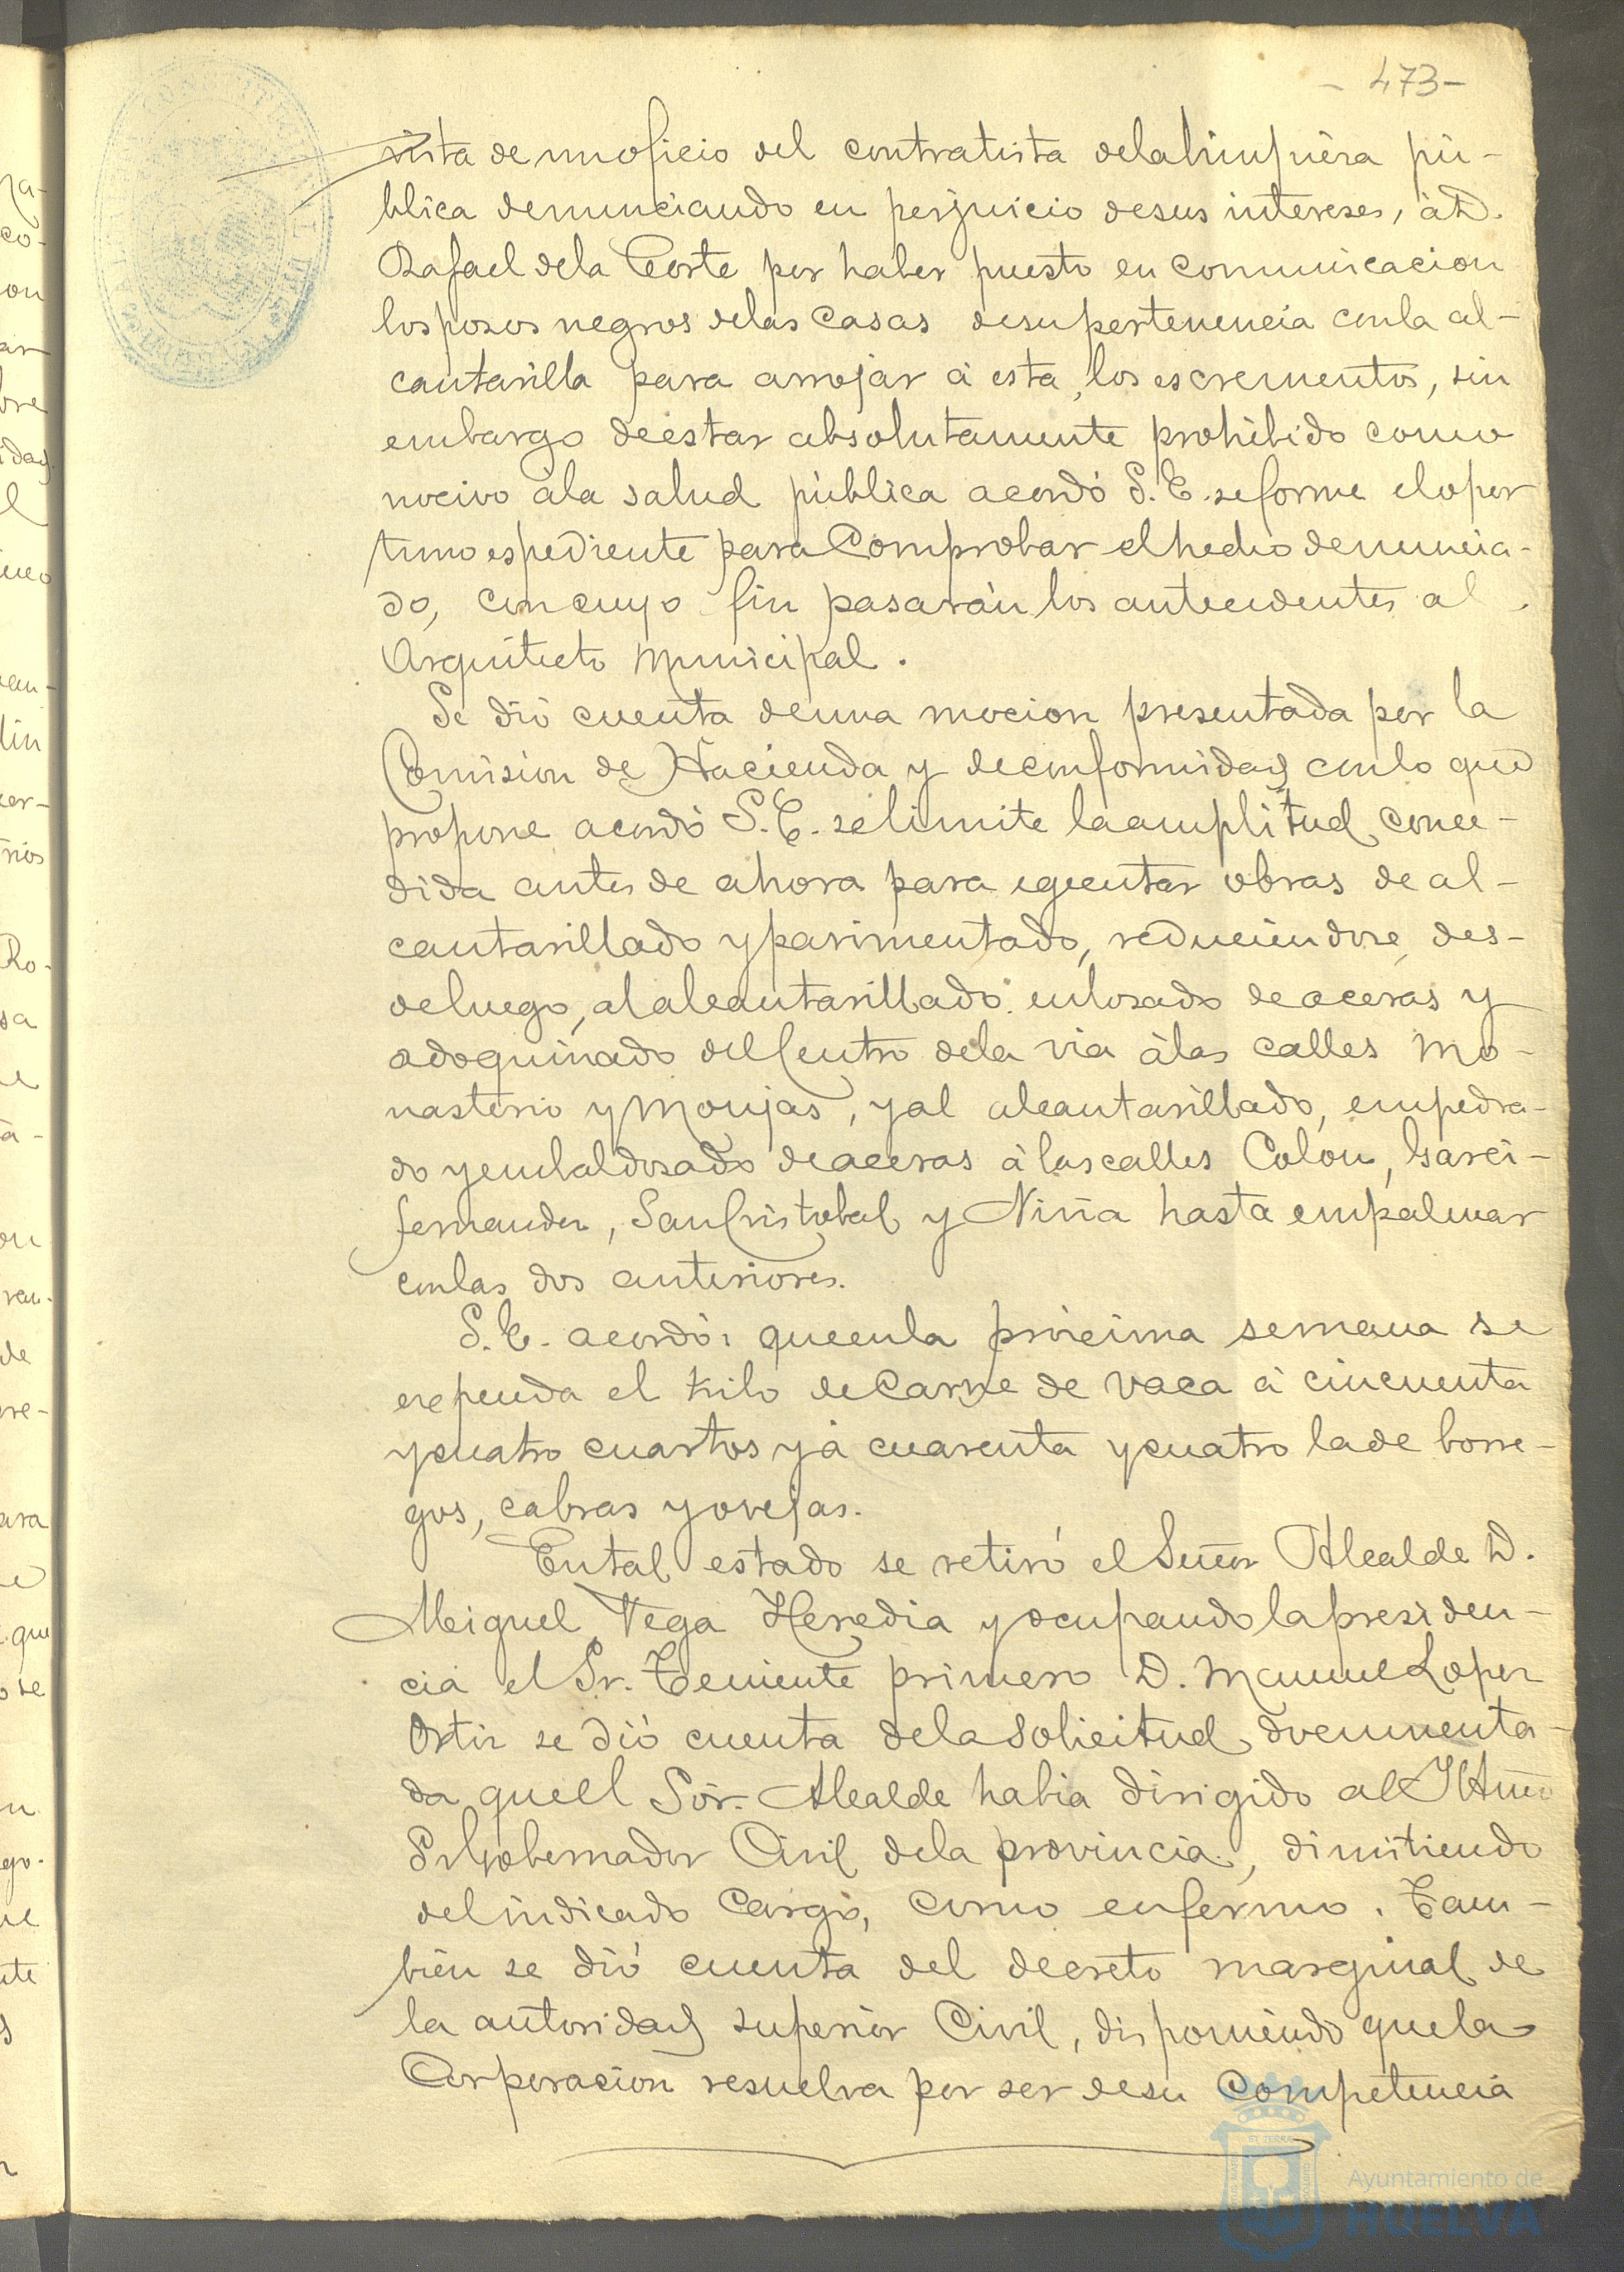 -473-
vista de un oficio del contratista de la limpieza pú-
blica denunciando en perjuicio de sus intereses, á D.
Rafael de la Corte por haber puesto en comunicacion
los pozos negros de las casas de su pertenencia con la al-
cantarilla para arrojar á esta, los escrementos, sin
embargo de estar absolutamente prohibido como
nocivo á la salud pública acordó S. E. se forme el opor
tuno espediente para comprobar el hecho denuncia-
do, con cuyo fin pasarán los antecedentes al
Arquitecto Municipal.
Se dió cuenta de una mocion presentada por la
Comision de Hacienda y de conformidad con lo que
propone acordó S. E. se limite la amplitud conce-
dida antes de ahora para egecutar obras de al-
cantarillado y pavimentado, reduciendose, des-
de luego, al alcantarillado, enlosado de aceras y
adoquinado del Centro de la via á las calles Mo-
nasterio y Monjas, y al alcantarillado, empedra-
do y embaldosado de aceras á las calles Colon, Garci-
fernandez, San Cristobal y Niña hasta empalmar
con las dos anteriores.
S. E. acordó: que en la próxima semana se
expenda el kilo de Carne de vaca á cincuenta
y cuatro cuartos y á cuarenta y cuatro la de borre-
gos, cabras y ovejas.
En tal estado se retiró el Señor Alcalde D.
Miguel Vega Heredia y ocupando la presiden-
cia el Sr. Teniente primero D. Manuel Lopez
Ortiz se dió cuenta de la solicitud documenta-
da que el Sór. Alcalde habia dirigido al Iltmo
Sr Gobernador Civil de la provincia, dimitiendo
del indicado cargo, como enfermo. Tam-
bien se dió cuenta del decreto marginal de
la autoridad superior Civil, disponiendo que la
Corporacion resuelva por ser de su competencia
Ayuntamiento de
HUELVA